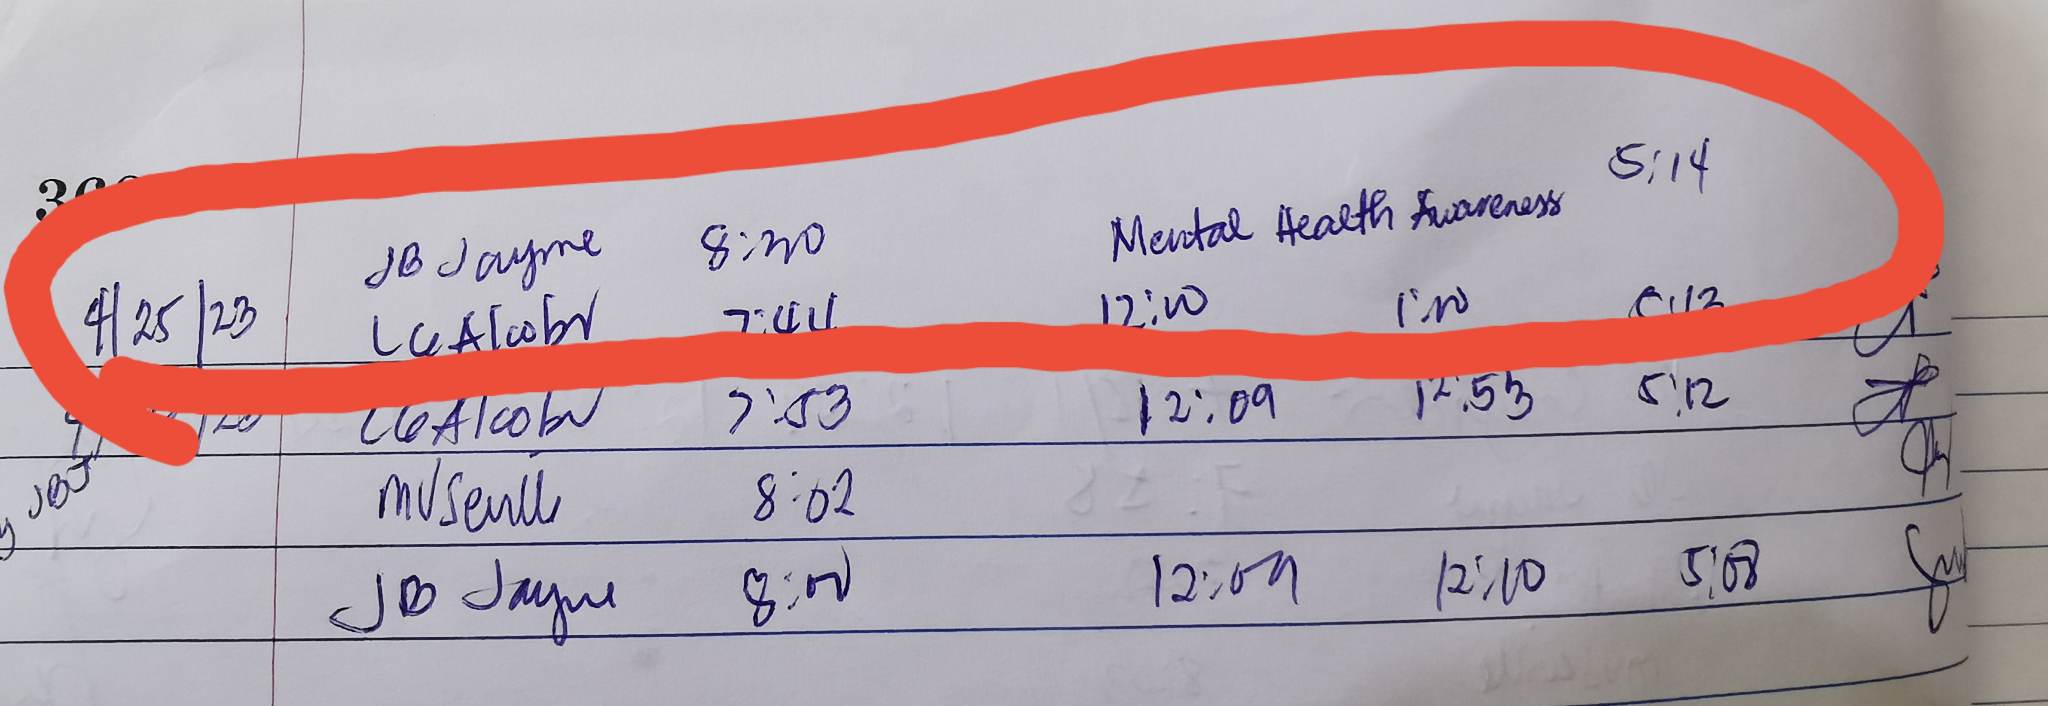 JB Jayme 8:20 Mental Health Awareness 5:14
4/25/23 LGAlcober 7:44 12:10 1:10 5:12
LGAlcober 7:53 12:09 12:53 5:12
JBJ MVSeville 8:02
JB Jayme 8:00 12:09 12:10 5:08